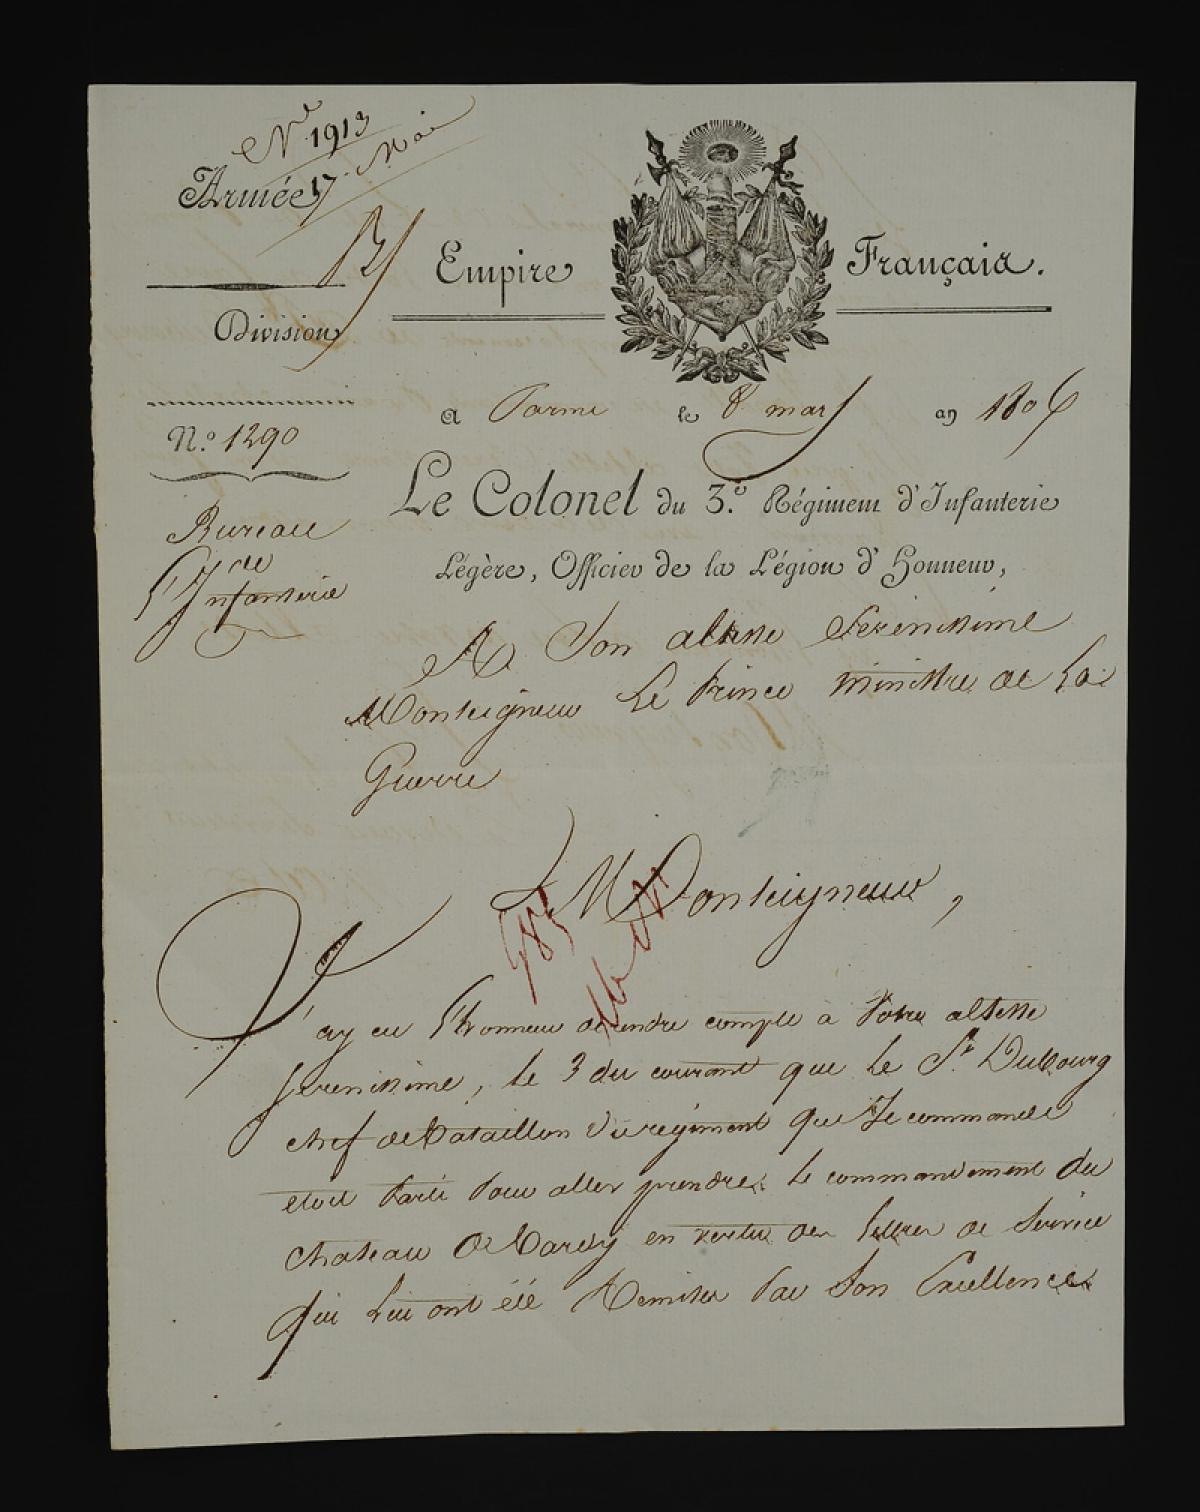 Nl 1913
17 Mai
Armée
Division
N.o 1290
Bureau
de
l'Infanterie
Empire Français.
a Parme le 8 mars an 1806
Le Colonel du 3.e Régiment d'Infanterie
Légère, Officier de la Légion d'Honneur,
A Son altesse Serenissime
Monseigneur Le Prince ministre de La
Guerre
Monseigneur,
J'ay eu l'honneur de rendre compte à Votre altesse
serenissime, le 3 du courant que le Sr. Dubourg
chef de bataillon du régiment que Je commande
étoit Parti Pour aller prendre le commandement du
chateau de Bardy en vertu des lettres de service
qui lui ont été Remises Par Son Excellence